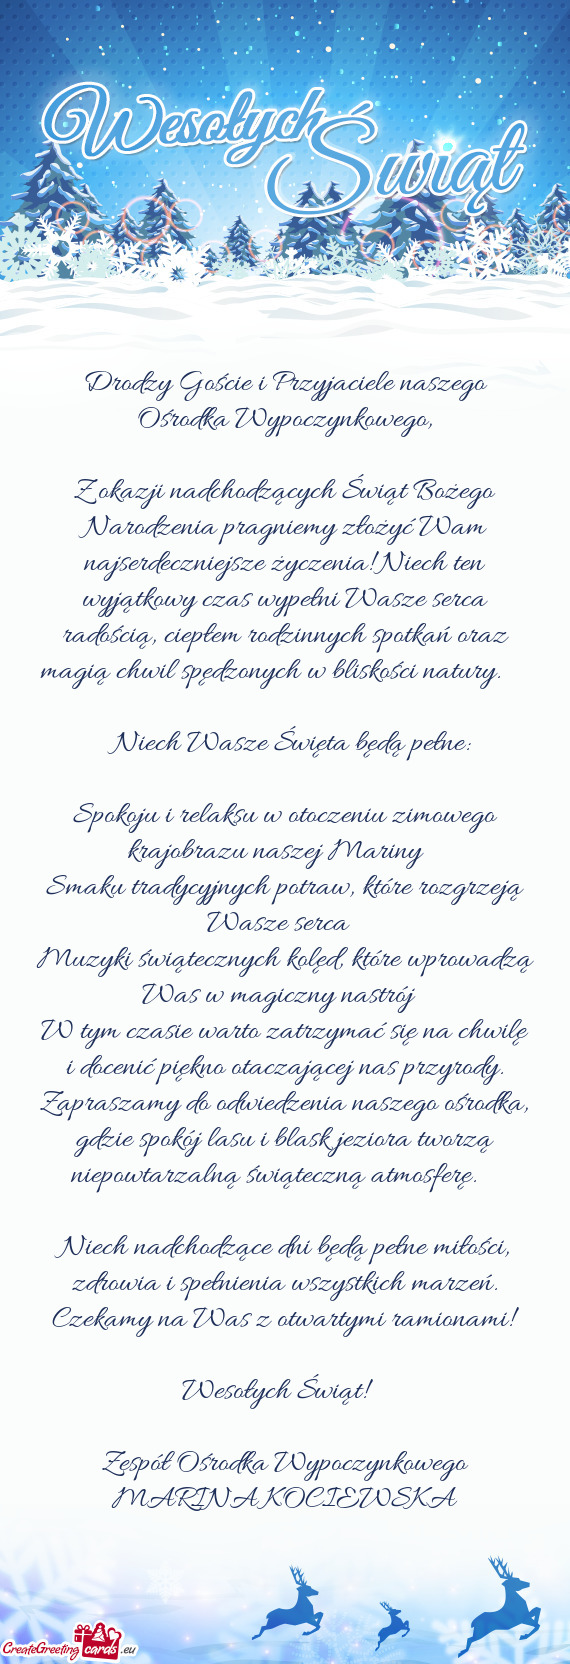 Wesołych
Świąt
Drodzy Goście i Przyjaciele naszego
Ośrodka Wypoczynkowego,
Z okazji nadchodzących Świąt Bożego
Narodzenia pragniemy złożyć Wam
najserdeczniejsze życzenia! Niech ten
wyjątkowy czas wypełni Wasze serca
radością, ciepłem rodzinnych spotkań oraz
magią chwil spędzonych w bliskości natury.
Niech Wasze Święta będą pełne:
Spokoju i relaksu w otoczeniu zimowego
krajobrazu naszej Mariny
Smaku tradycyjnych potraw, które rozgrzeją
Wasze serca
Muzyki świątecznych kolęd, które wprowadzą
Was w magiczny nastrój
W tym czasie warto zatrzymać się na chwilę
i docenić piękno otaczającej nas przyrody.
Zapraszamy do odwiedzenia naszego ośrodka,
gdzie spokój lasu i blask jeziora tworzą
niepowtarzalną świąteczną atmosferę.
Niech nadchodzące dni będą pełne miłości,
zdrowia i spełnienia wszystkich marzeń.
Czekamy na Was z otwartymi ramionami!
Wesołych Świąt!
Zespół Ośrodka Wypoczynkowego
MARINA KOCIEWSKA
CreateGreeting cards .eu